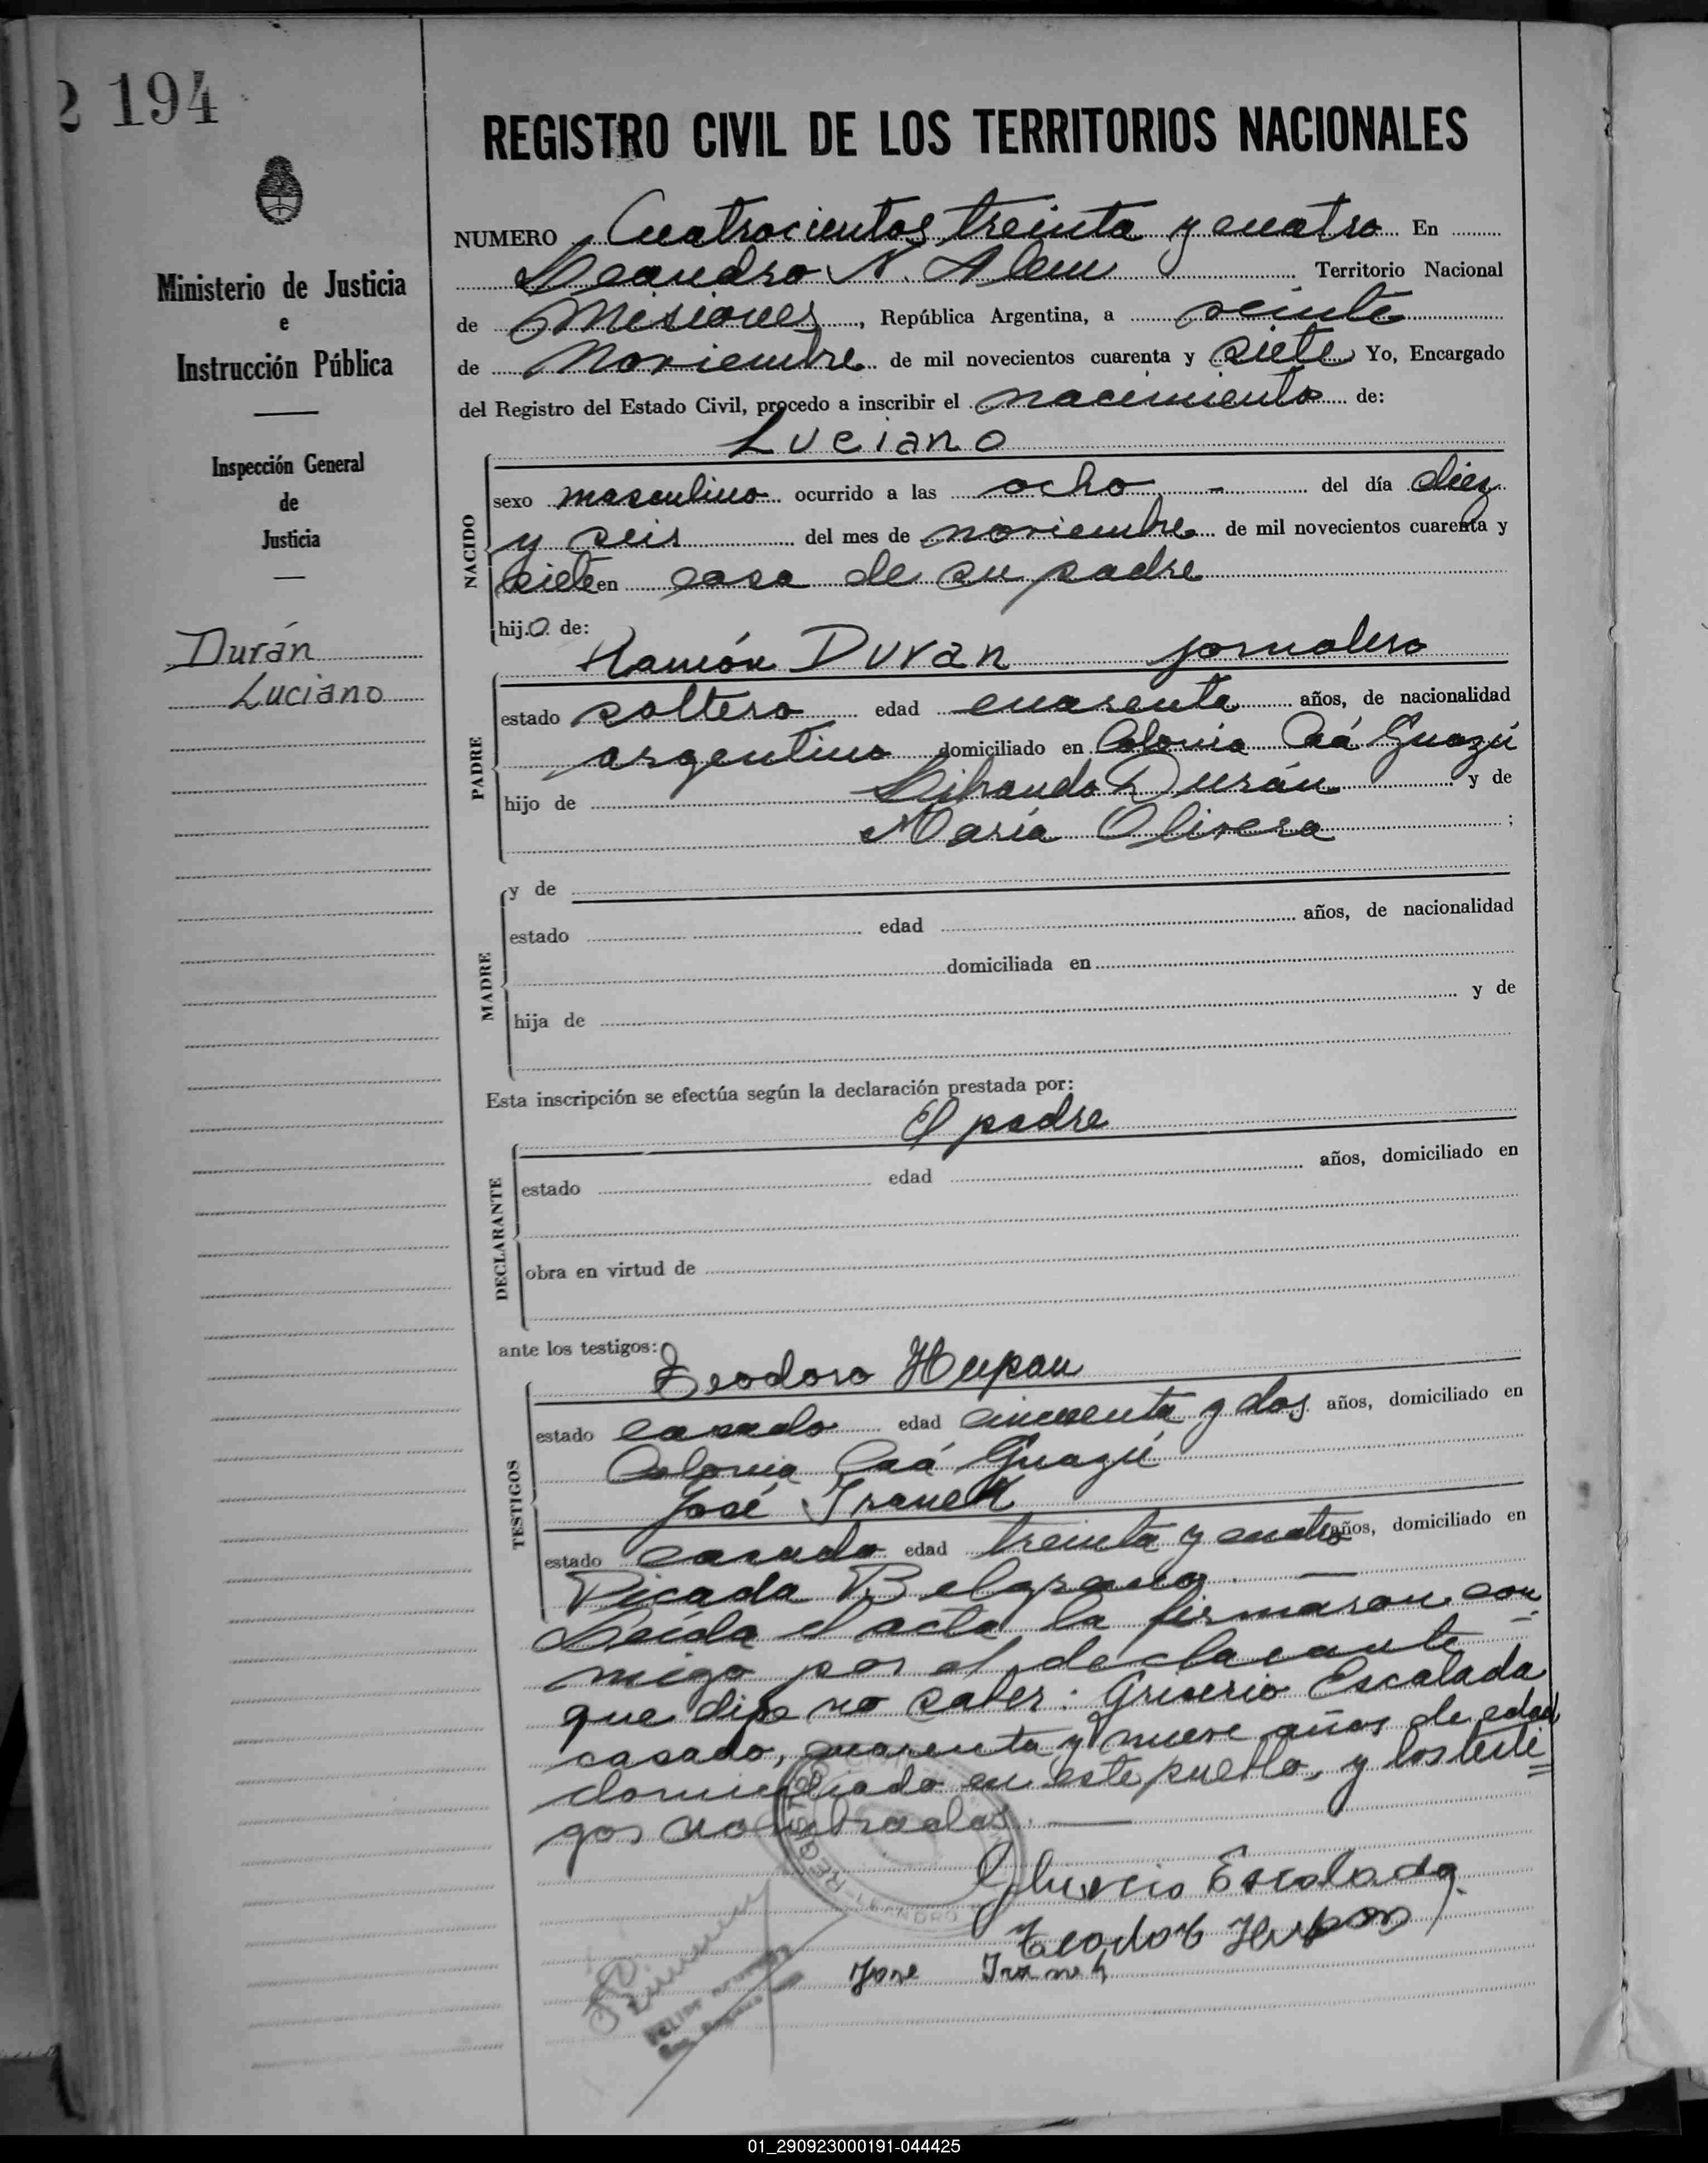 2 194
REGISTRO CIVIL DE LOS TERRITORIOS NACIONALES
Ministerio de Justicia
e
Instrucción Pública
Inspección General
de
Justicia
Durán
Luciano
NUMERO Cuatrocientos treinta y cuatro En
Leandro N. Alem Territorio Nacional
de Misiones, República Argentina, a veinte
de Noviembre de mil novecientos cuarenta y siete Yo, Encargado
del Registro del Estado Civil, procedo a inscribir el nacimiento de:
Luciano
NACIDO
sexo masculino ocurrido a las ocho - del día diez
y seis del mes de noviembre de mil novecientos cuarenta y
siete en casa de su padre
hijo de:
Ramón Duran jornalero
PADRE
estado soltero edad cuarenta años, de nacionalidad
argentino domiciliado en Colonia Caá Guazú
hijo de Librando Durán y de
María Olivera ;
MADRE
y de
estado edad años, de nacionalidad
domiciliada en
hija de y de
Esta inscripción se efectúa según la declaración prestada por:
El padre
DECLARANTE
estado edad años, domiciliado en
obra en virtud de
ante los testigos:
Teodoro Hupan
TESTIGOS
estado casado edad cincuenta y dos años, domiciliado en
Colonia Caá Guazú
José Iraneck
estado casado edad treinta y cuatro años, domiciliado en
Picada Belgrano. —
Leída el acta la firmaron con
migo por el declarante
que dijo no saber: Escalada
casado, cuarenta y nueve años de edad
domiciliado en este pueblo, y los testi
gos nombrados. —
Escalada
Teodor Hupan
Jose
01_290923000191-044425